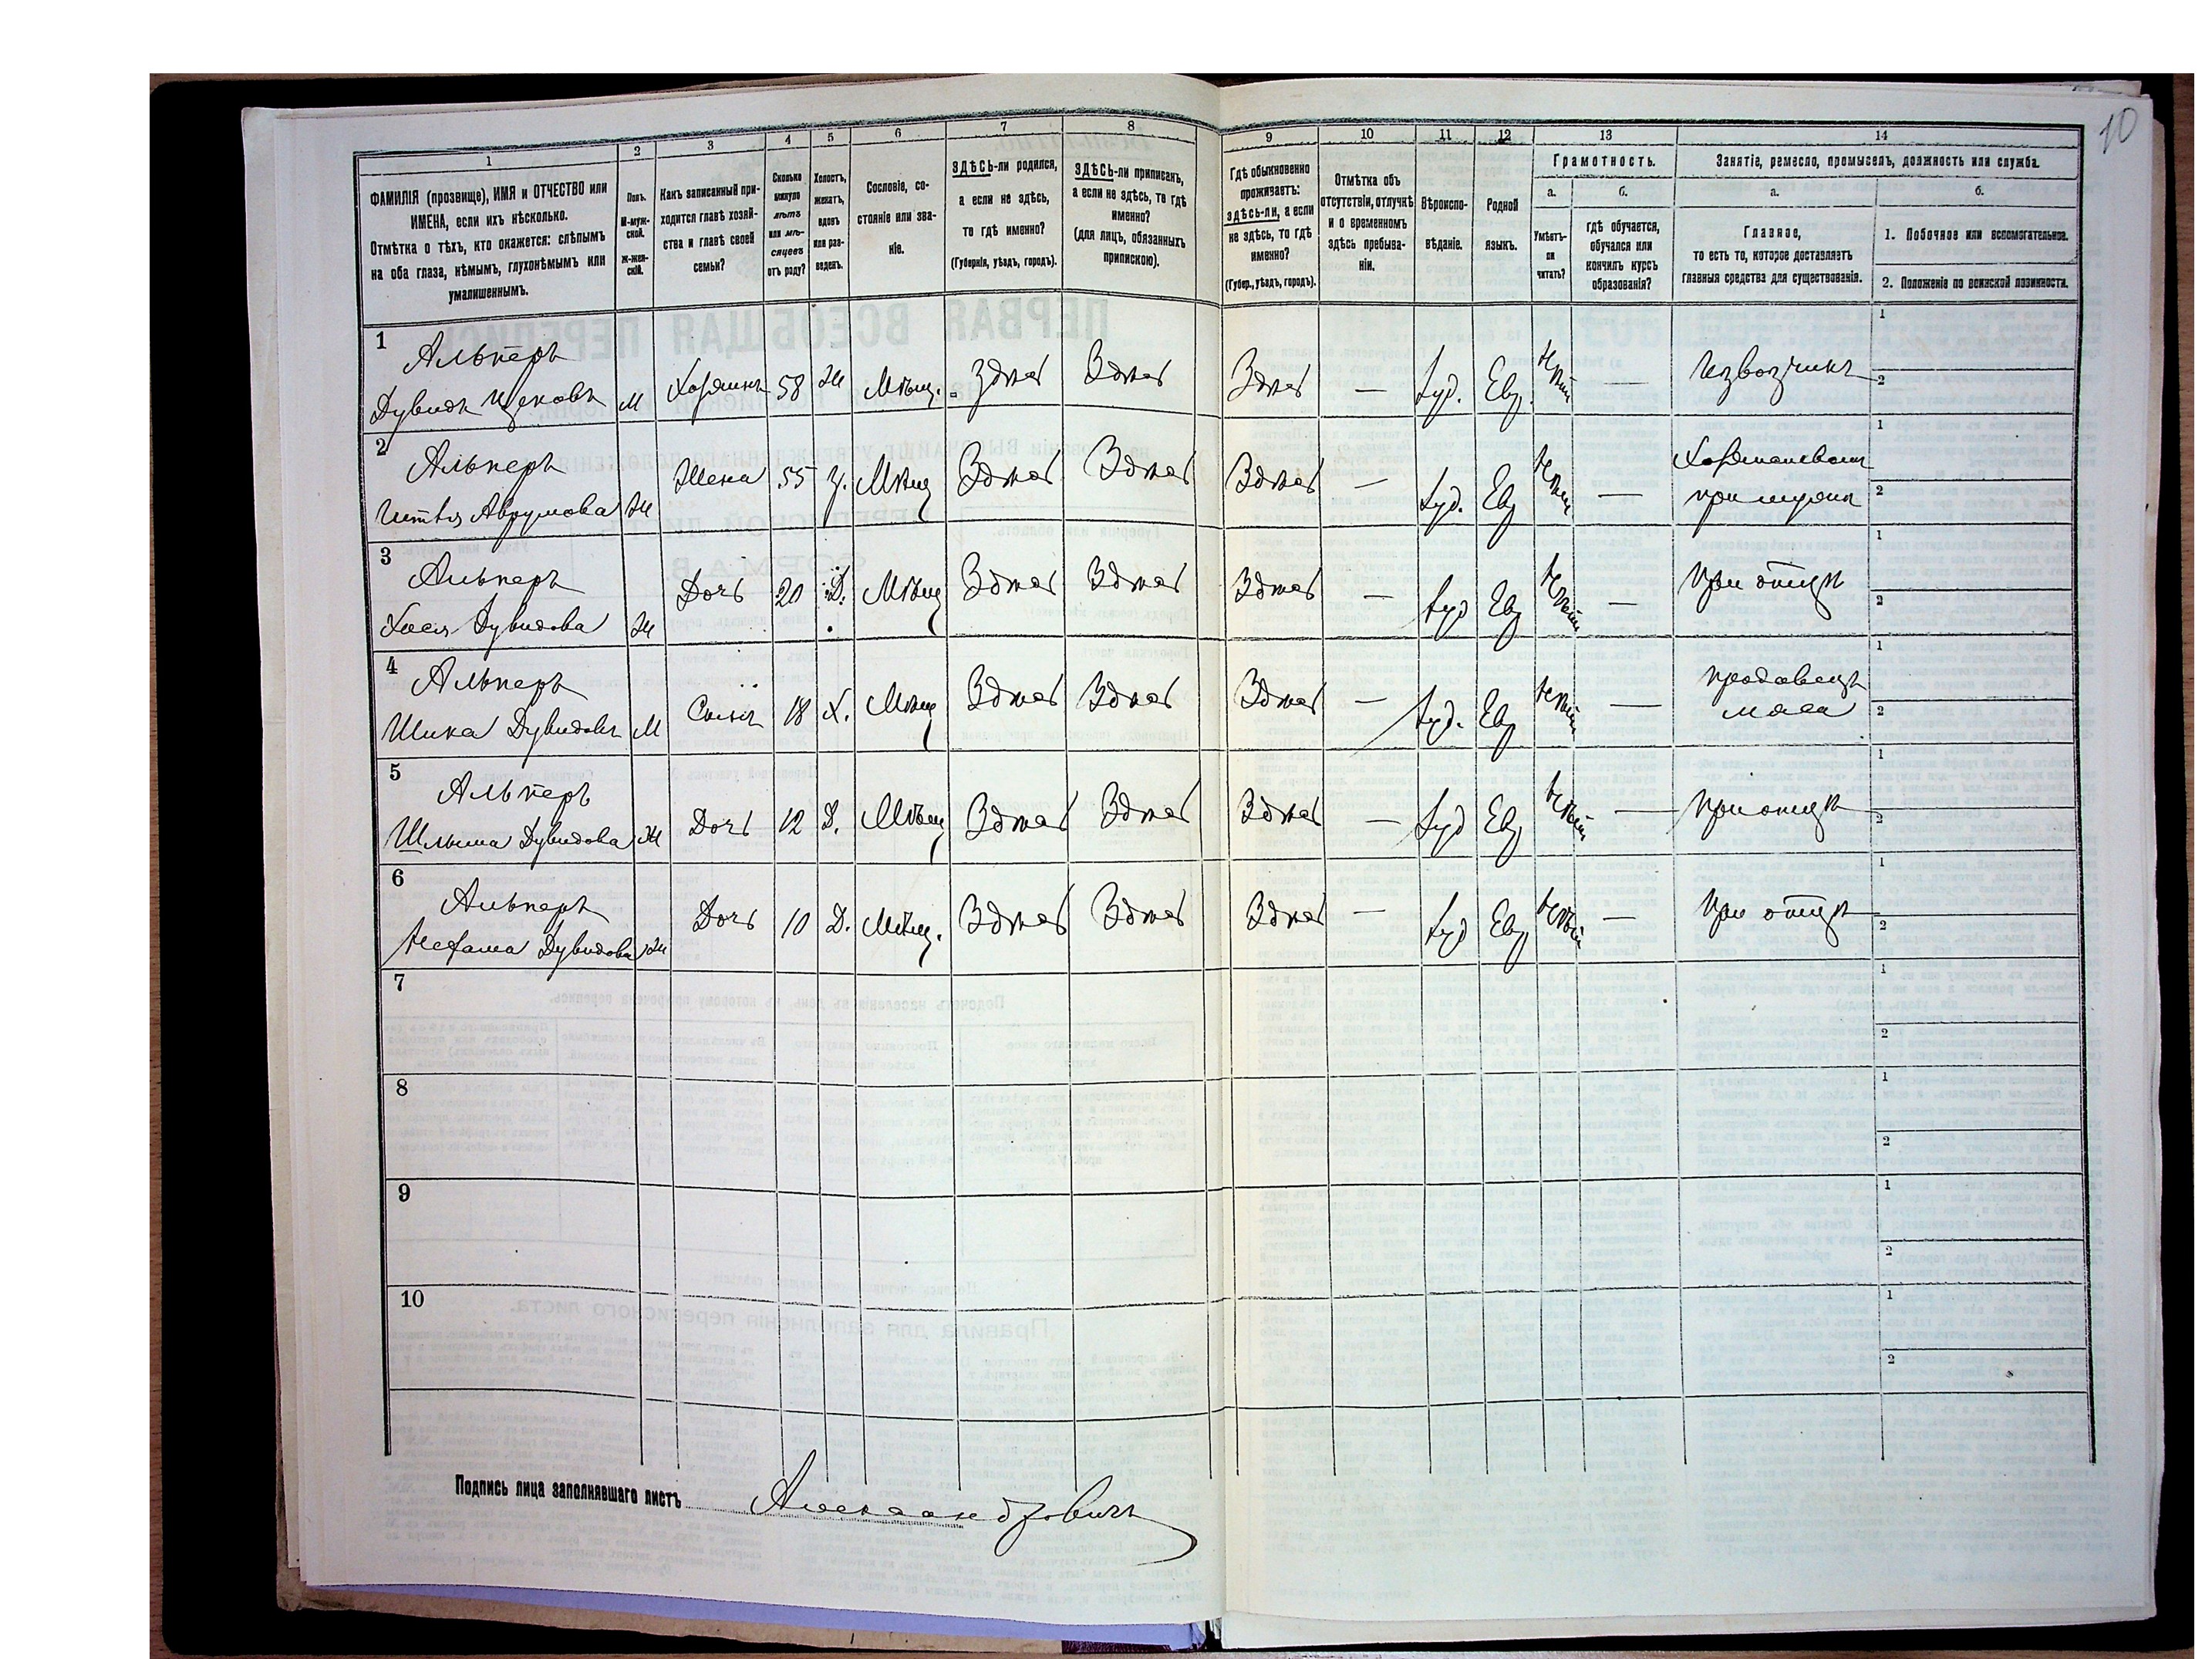 10
1 2 3 4 5 6 7 8 9 10 11 12 13 14
ФАМИЛІЯ (прозвище), ИМЯ и ОТЧЕСТВО или
ИМЕНА, если ихъ нѣсколько.
Отмѣтка о тѣхъ, кто окажется: слѣпымъ
на оба глаза, нѣмымъ, глухонѣмымъ или
умалишеннымъ.
Полъ.
М-муж-
ской.
Ж-жен-
скій.
Какъ записанный при-
ходится главѣ хозяй-
ства и главѣ своей
семьи?
Сколько
минуло
лѣтъ
или мѣ-
сяцевъ
отъ роду?
Холостъ,
женатъ,
вдовъ
или раз-
веденъ.
Сословіе, со-
стояніе или зва-
ніе.
ЗДѢСЬ-ли родился,
а если не здѣсь,
то гдѣ именно?
(Губернія, уѣздъ, городъ).
ЗДѢСЬ-ли приписанъ,
а если не здѣсь, то гдѣ
именно?
(для лицъ, обязанныхъ
припискою).
Гдѣ обыкновенно
проживаетъ:
здѣсь-ли, а если
не здѣсь, то гдѣ
именно?
(Губер., уѣздъ, городъ).
Отмѣтка объ
отсутствіи, отлучкѣ
и о временномъ
здѣсь пребыва-
ніи.
Вѣроиспо-
вѣданіе.
Родной
языкъ.
Грамотность.
а.
Умѣетъ-
ли
читать?
б.
гдѣ обучается,
обучался или
кончилъ курсъ
образованія?
Занятіе, ремесло, промыселъ, должность или служба.
а.
Главное,
то есть то, которое доставляетъ
главныя средства для существованія.
б.
1. Побочное или вспомогательное.
2. Положеніе по воинской повинности.
1
Альперъ
Дувидъ Ицековъ М Хозяинъ 58 Ж Мѣщ. Здѣсь Здѣсь Здѣсь — Іуд. Евр. Нѣтъ — Извозчикъ
1
2
2
Альперъ
Итля Аврумова Ж Жена 55 З. Мѣщ Здѣсь Здѣсь Здѣсь — Іуд. Евр Нѣтъ —
при мужѣ
1
2
3
Альперъ
Хася Дувидова Ж Дочь 20 Д. Мѣщ Здѣсь Здѣсь Здѣсь — Іуд Евр Нѣтъ — При отцѣ
1
2
4
Альперъ
Шика Дувидовъ М Сынъ 18 Х. Мѣщ Здѣсь Здѣсь Здѣсь — Іуд. Евр Нѣтъ — продавецъ
мяса
1
2
5
Альперъ
Дувидова Ж Дочь 12 Д. Мѣщ Здѣсь Здѣсь Здѣсь — Іуд Евр Нѣтъ — При отцѣ
1
2
6
Альперъ
Нехама Дувидова Ж Дочь 10 Д. Мѣщ. Здѣсь Здѣсь Здѣсь — Іуд Евр Нѣтъ — При отцѣ
1
2
7
1
2
8
1
2
9
1
2
10
1
2
Подпись лица заполнявшаго листъ Александровичъ